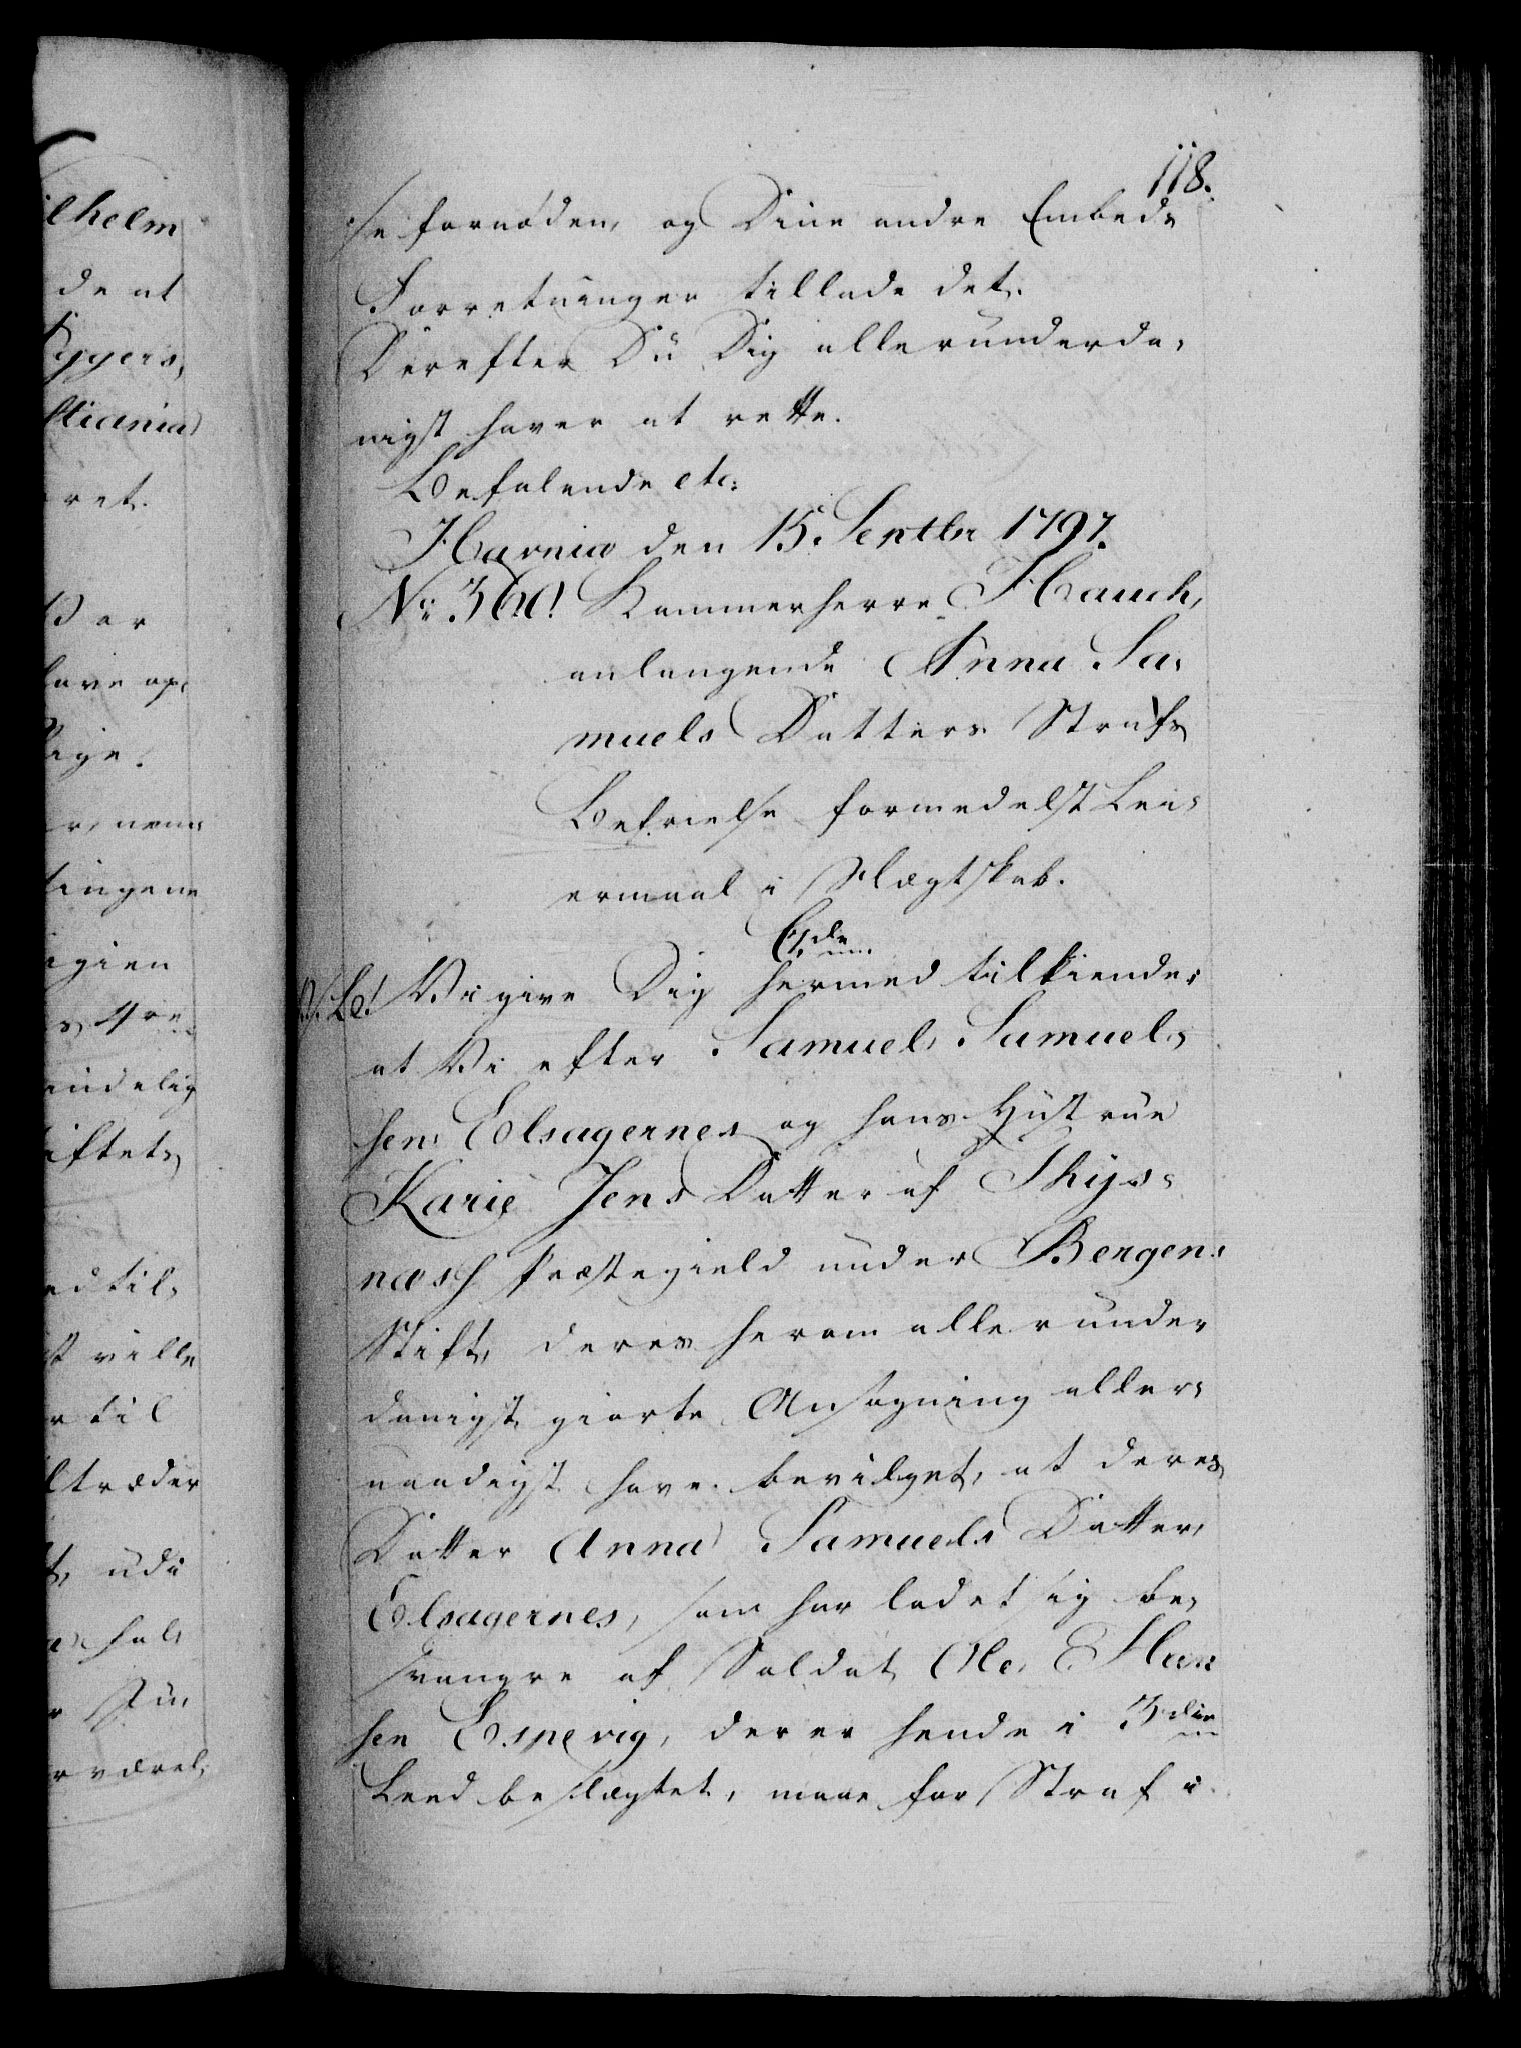 118.
se fornøden, og Dine andre Embeds
Forretninger tillade det.
Derefter Du Dig allerunderda-
nigst haver at rette.
Befalende etc:
Havnia den 15. Septbr 1797.
No: 360. Kammerherre Hauch,
anlangende Anna Sa-
muels Datters Strafs
Befrielse formedelst Lei-
ermaal i Slægtskab.
Vi give Dig hermed tilkiende:
at Vi efter Samuel Samuel-
sen Elsagernes og hans Hustrue
Karie Jens Datter af Thys-
næs Præstegield under Bergens
Stift, deres herom allerunder
danigst giorte Ansøgning aller-
naadigst have bevilget, at deres
Datter Anna Samuels Datter
Elsagernes, som har ladet sig be-
svangre af Soldat Ole Han
sen Espevig, der er hende i 3die
Leed beslægtet, maae for Straf i
ilhelm
de at
Eggers,
stiania
ret.
Vor
have op-
ige.
r, nem-
tingene
igien
indelig
iftets
ed til-
st ville
r til
ltræder
t, udi